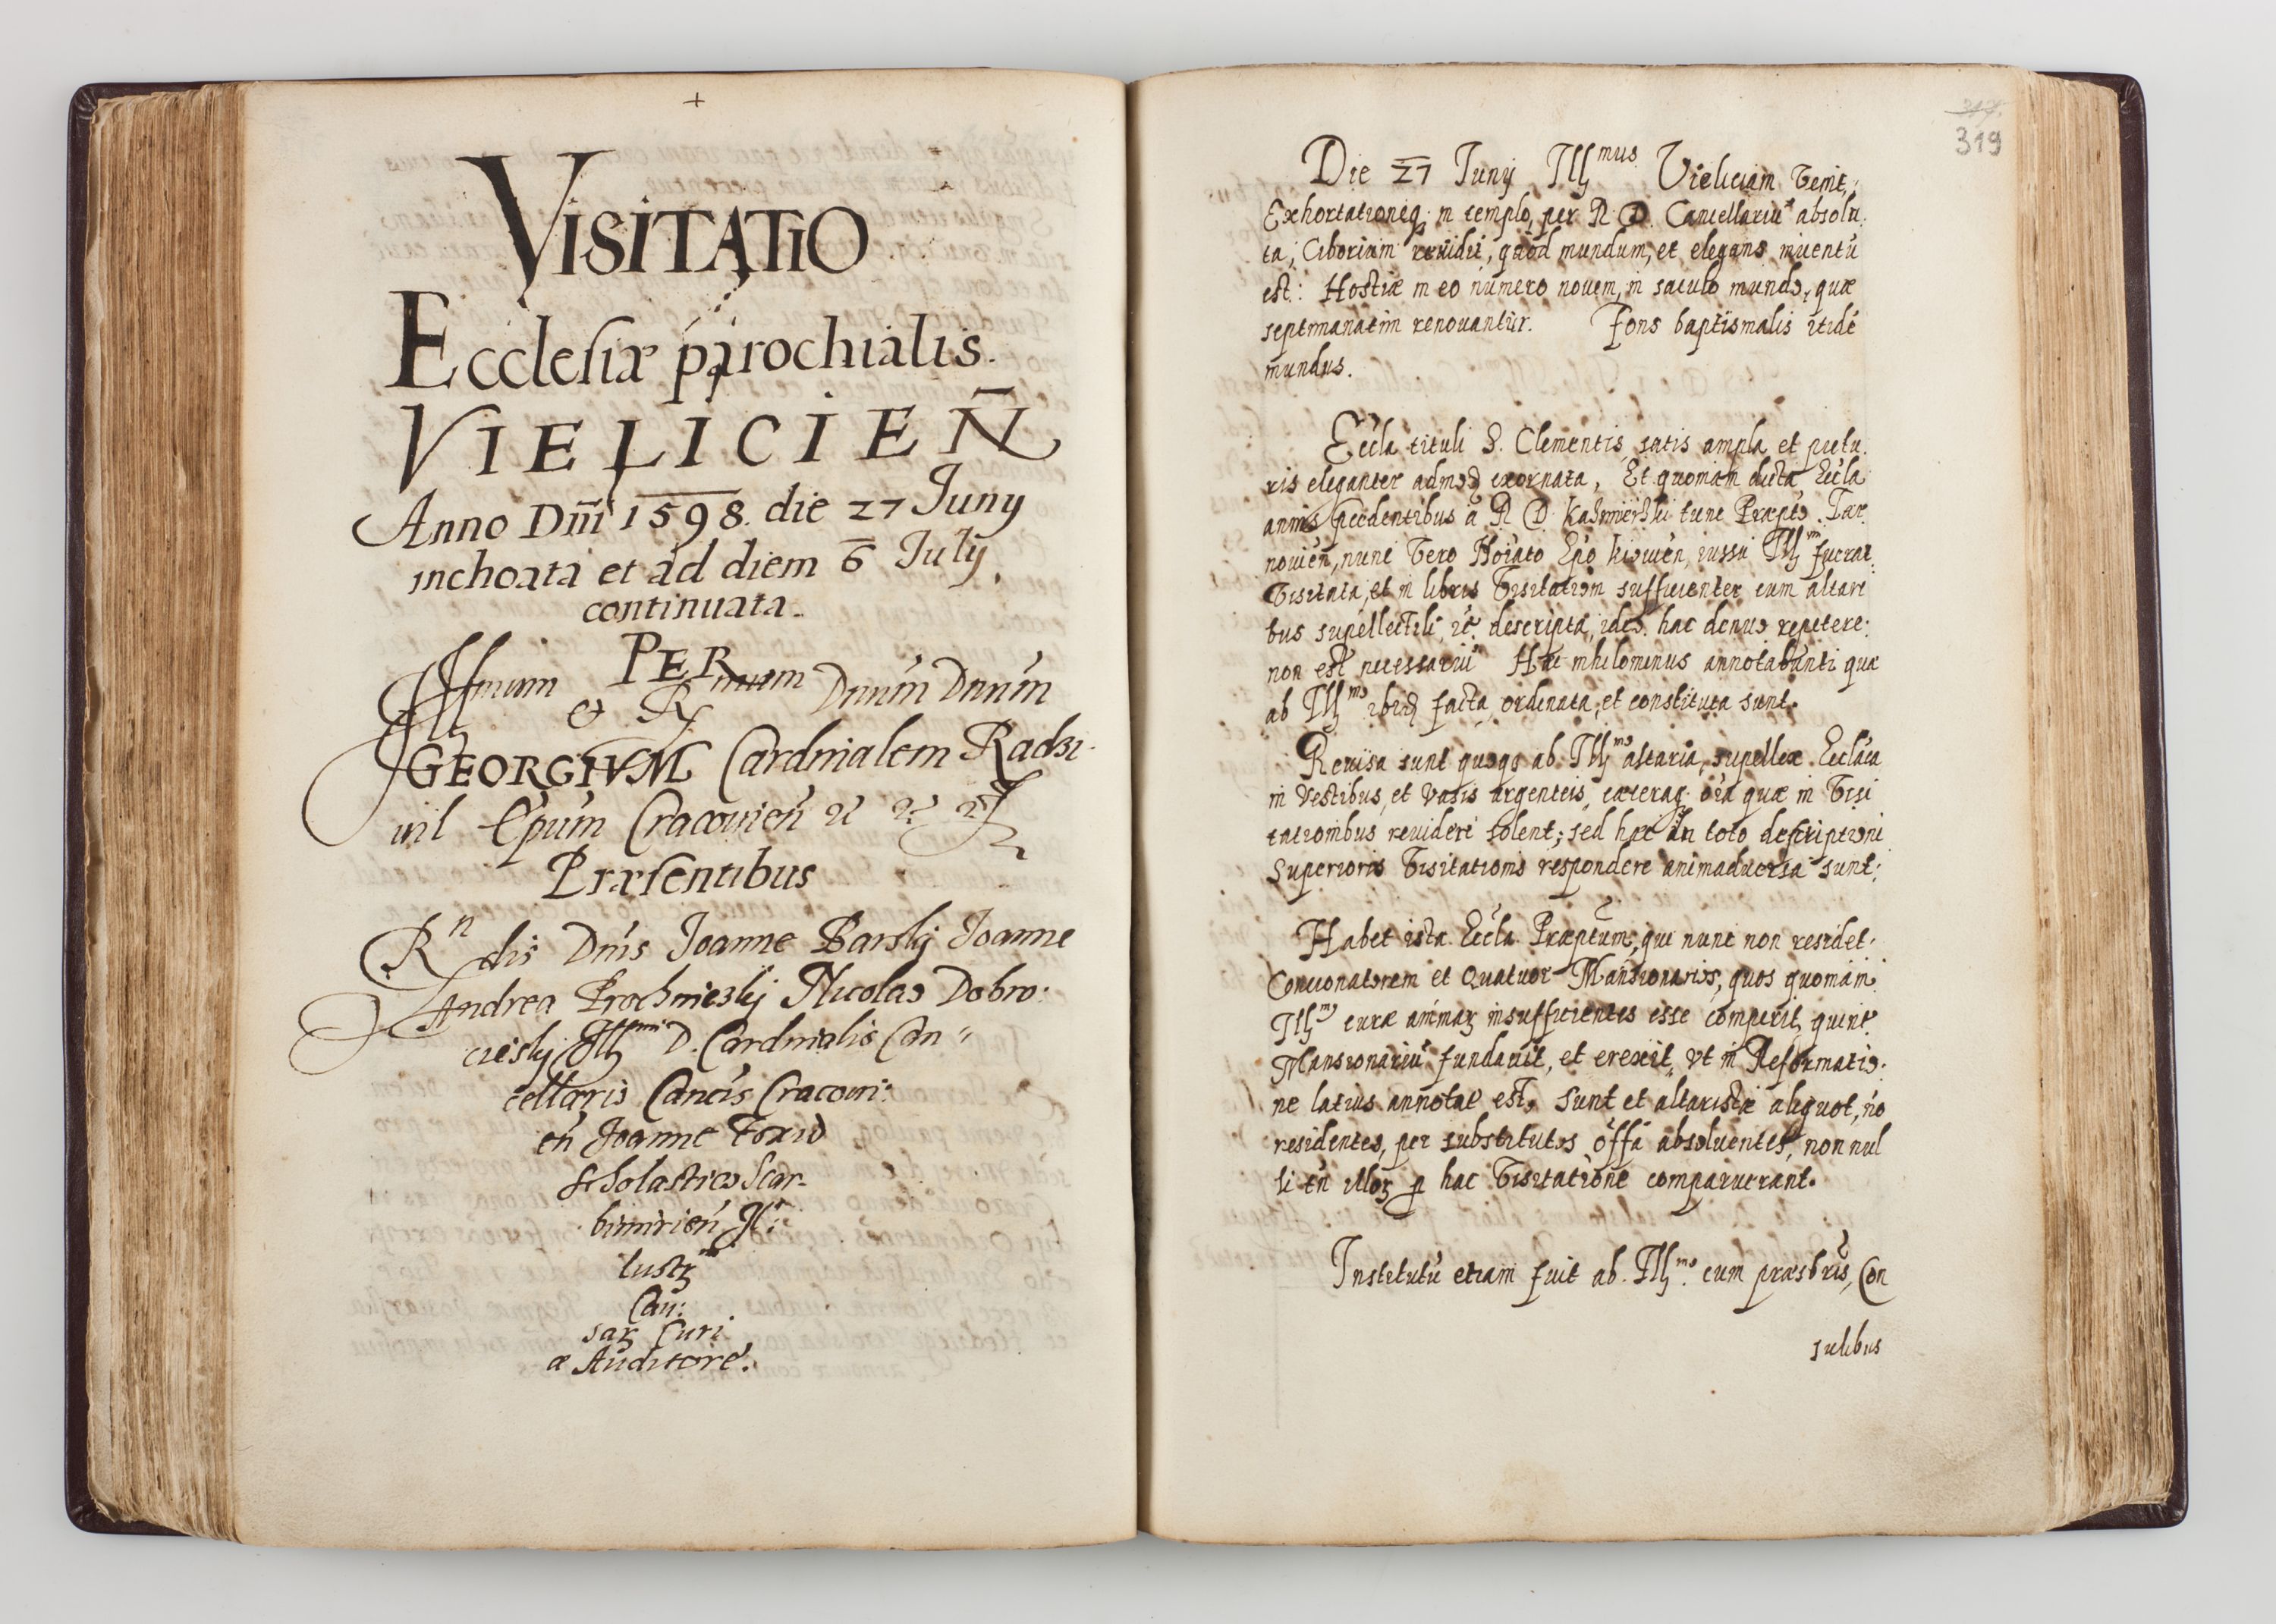 +
VISITATIO
Ecclesiæ parochialis.
VIELICIEN̄
Anno Dn̄i 1598. die 27 Juny
inchoata et ad diem 6 July,
continuata.
PER
Illmum & R mum Dnūm Dnūm
GEORGIVM Cardinalem Radzi
uil Epūm Cracouień
Præsentibus
Rndis Dnīs Joanne Barsky Joanne
Andrea Prochniesky Nicolao Dobro:
ciesky Illmi D. Cardinalis Can
cellaris Cancīs Cracoui:
eń Joanne Foxio
scholastico Scar.
bimirień Il:
lustr
Cau:
sar Curi
æ Auditore.
319
Die 27 Juny Illmus Vieliciam venit;
Exhortationeq; in templo, per R D. Cancellariū absolu.
ta; Ciborium reuidit, quod mundum, et elegans inuentū
est: Hostiæ in eo numero nouem, in saculo mundo, quæ
septimanatim renouantur. Fons baptismalis itidē
mundus.
Eccla tituli S. Clementis, satis ampla et pictu.
ris eleganter admod exornata, Et quoniam dicta Eccla
annis pcedentibus a R D. tunc Præpto. Tar
nouień, nunc vero Noīato Epo kiouień, iussu Illm fuerat
visitata, et in libris visitation sufficienter cum altari
bus supellectili, etc. descripta, ideo. hac denuo repetere:
non est necessariū Hic nihilominus annotabunt quæ
ab Illmo ibid facta, ordinata, et constituta sunt.
Reuisa sunt quoqs ab Illmo altaria, supellex Ecclāca
in vestibus, et vasis argenteis, cæteraq. oīa quæ in visi
tationibus reuideri solent; sed hæc in toto descriptioni
superioris visitationis respondere animaduersa sunt;
Habet ista Eccla. Præptum, qui nunc non residet.
Concionatorem et quatuor Mansionarios, quos quoniam
Illmo curæ animar insufficientes esse comperit, quint
Mansionariū fundauit, et erexit, vt in Reformatio.
ne latius annotat est, Sunt et altaristæ aliquot, no
residentes, per substitutos offa absoluentes, non nul
li tn illor p hac visitatione comparuerant.
Institutū etiam fuit ab. Illmo. cum præsbrīs, Con
sulibus